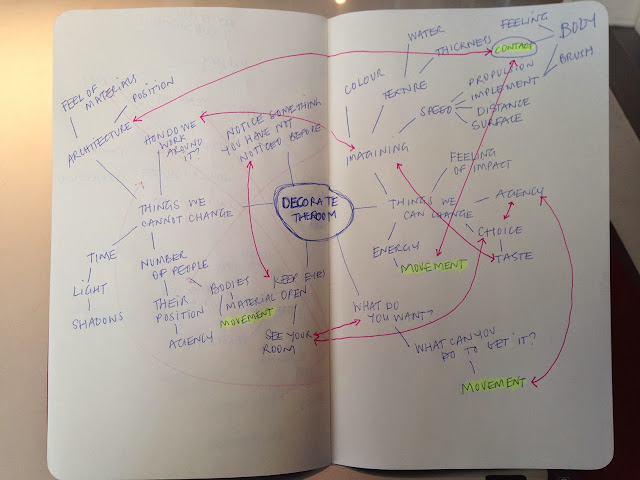 FEEL OF
MATERIALS
POSITION
ARCHITECTURE
HOW DO WE
WORK
AROUND
IT?
NOTICE SOMETHING
YOU HAVE NOT
NOTICED BEFORE
THINGS WE
CANNOT CHANGE
TIME
LIGHT
SHADOWS
NUMBER
OF PEOPLE
THEIR
POSITION
AGENCY
BODIES
MATERIAL
MOVEMENT
KEEP EYES
OPEN
SEE YOUR
ROOM
DECORATE
THE ROOM
WATER
THICKNESS
COLOUR
TEXTURE
IMAGINING
SPEED
FEELING
CONTACT
BODY
BRUSH
PROPULSION
IMPLEMENT
DISTANCE
SURFACE
FEELING
OF IMPACT
THINGS WE
CAN CHANGE
AGENCY
CHOICE
TASTE
ENERGY
MOVEMENT
WHAT DO
YOU WANT?
WHAT CAN YOU
DO TO GET IT?
MOVEMENT